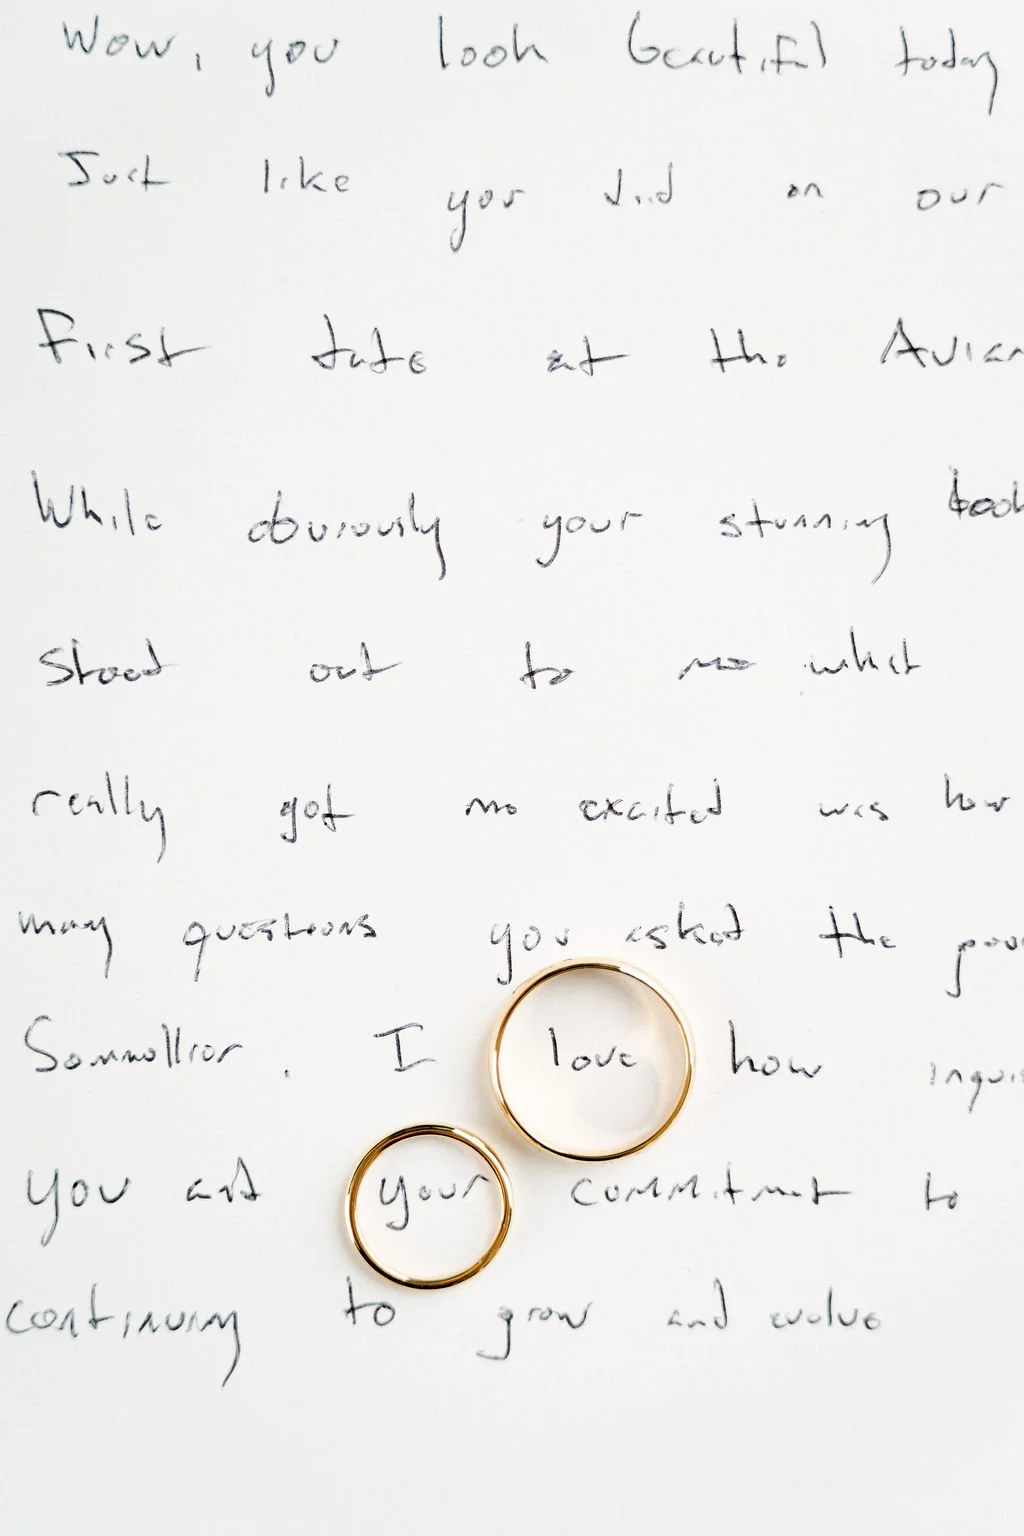 Wow, you look beautiful today
Just like you did on our
First date at the Avian
While obviously your stunning look
stood out to me what
really got me excited was how
many questions you asked the poor
Sommelier. I love how inquis
you are your commitment to
continuing to grow and evolve